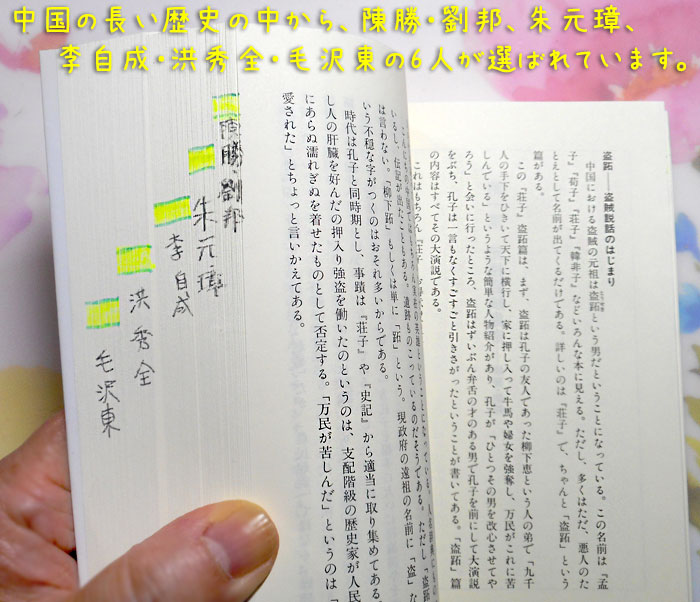 中国の長い歴史の中から、陳勝・劉邦、朱元璋、
李自成・洪秀全・毛沢東の6人が選ばれています。
盗跖――盗賊説話のはじまり
中国における盗賊の元祖は盗跖という男だということになっている。この名前は『孟
子』『荀子』『荘子』『韓非子』などいろんな本に見える。ただし、多くはただ、悪人のた
とえとして名前が出てくるだけである。詳しいのは『荘子』で、ちゃんと「盗跖」という
篇がある。
この『荘子』盗跖篇は、まず、盗跖は孔子の友人であった柳下恵という人の弟で「九千
人の手下をひきいて天下に横行し、家に押し入って牛馬や婦女を強奪し、万民がこれに苦
しんでいる」というような簡単な人物紹介があり、孔子が「ひとつその男を改心させてや
ろう」と会いに行ったところ、盗跖はずいぶん弁舌の才のある男で孔子を前にして大演説
をぶち、孔子は一言もなくすごすごと引きさがったということが書いてある。「盗跖」篇
の内容はすべてその大演説である。
これはもちろん『荘子
いるし、伝記が出たこともある。遺跡ものこっているのだそうである。ただし「盗跖
は言わない。「柳下跖」もしくは単に「跖」という。現政府の遠祖の名前に「盗」な
いう不穏な字がつくのはおそれ多いからである。
時代は孔子と同時期とし、事蹟は『荘子』や『史記』から適当に取り集めてある
し人の肝臓を好んだの押入り強盗を働いたのというのは、支配階級の歴史家が人民
にあらぬ濡れぎぬを着せたものとして否定する。「万民が苦しんだ」というのは「
愛された」とちょっと言いかえてある。
陳勝・劉邦
朱元璋
李自成
洪秀全
毛沢東